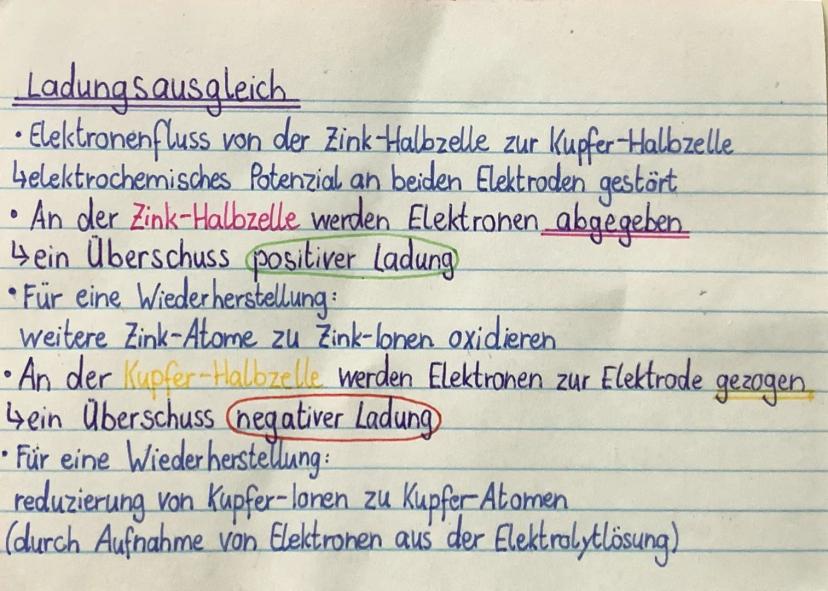 Ladungsausgleich
• Elektronenfluss von der Zink-Halbzelle zur Kupfer-Halbzelle
↳elektrochemisches Potenzial an beiden Elektroden gestört
• An der Zink-Halbzelle werden Elektronen abgegeben
↳ein Überschuss positiver Ladung
• Für eine Wiederherstellung:
weitere Zink-Atome zu Zink-Ionen oxidieren
• An der Kupfer-Halbzelle werden Elektronen zur Elektrode gezogen
↳ein Überschuss negativer Ladung
• Für eine Wiederherstellung:
reduzierung von Kupfer-Ionen zu Kupfer-Atomen
(durch Aufnahme von Elektronen aus der Elektrolytlösung)